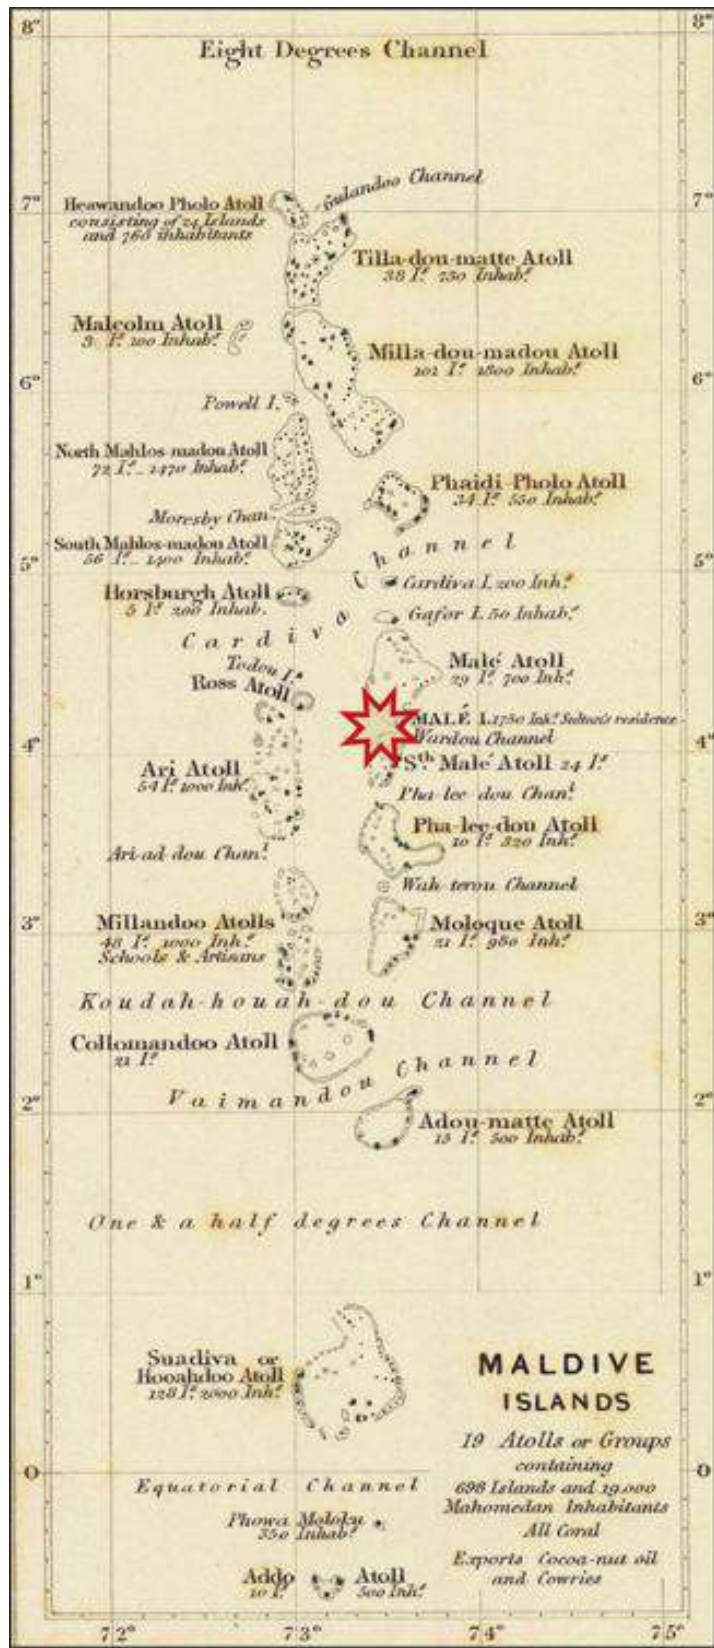 8°
8°
Eight Degrees Channel
7°
Gulandoo Channel
7°
Heawandoo Pholo Atoll
consisting of 24 Islands
and 760 inhabitants
Tilla-dou-matte Atoll
38 Iˢ. 750 Inhabˢ.
Malcolm Atoll
3 Iˢ. 100 Inhabˢ.
Milla-dou-madou Atoll
101 Iˢ. 1800 Inhabˢ.
6°
6°
Powell I.
North Mahlos-madou Atoll
72 Iˢ. 1470 Inhabˢ.
Phaidi-Pholo Atoll
34 Iˢ. 550 Inhabˢ.
Moresby Chan.
South Mahlos-madou Atoll
56 Iˢ. 1400 Inhabˢ.
5°
5°
Cardiva Channel
Cardiva I. 200 Inhˢ.
Horsburgh Atoll
5 Iˢ. 200 Inhab.
Gafor I. 50 Inhabˢ.
Todou I.
Ross Atoll
Malé Atoll
29 Iˢ. 700 Inhˢ.
MALÉ I. 1750 Inhˢ. Sultan's residence
Wardou Channel
4°
4°
Sᵗʰ Malé Atoll 24 Iˢ.
Ari Atoll
54 Iˢ. 1000 Inhˢ.
Pha lee dou Chanˡ.
Pha-lee-dou Atoll
10 Iˢ. 320 Inhˢ.
Ari-ad-dou Chanˡ.
Wah terou Channel
3°
3°
Millandoo Atolls
48 Iˢ. 1000 Inhˢ.
Schools & Artisans
Moloque Atoll
21 Iˢ. 980 Inhˢ.
Koudah-houah-dou Channel
Collomandoo Atoll
21 Iˢ.
Vaimandou Channel
2°
2°
Adou-matte Atoll
15 Iˢ. 500 Inhabˢ.
One & a half degrees Channel
1°
1°
Suadiva or
Hooahdoo Atoll
128 Iˢ. 2000 Inhˢ.
MALDIVE
ISLANDS
19 Atolls or Groups
containing
698 Islands and 19.000
Mahomedan Inhabitants
All Coral
Exports Cocoa-nut oil
and Cowries
0
0
Equatorial Channel
Phowa Moloku
350 Inhabˢ.
Addo Atoll
10 Iˢ. 500 Inhˢ.
72°
73°
74°
75°